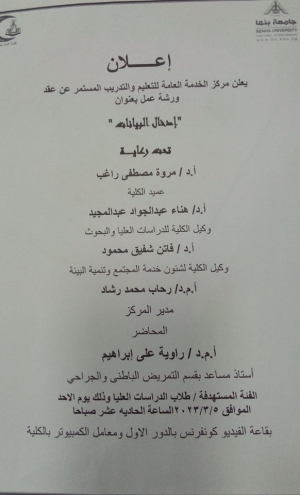 جامعة بنها
BENHA UNIVERSITY
إعـــــلان
يعلن مركز الخدمة العامة للتعليم والتدريب المستمر عن عقد
ورشة عمل بعنوان
"إدخال البيانات"
تحت رعاية
أ.د/ مروة مصطفى راغب
عميد الكلية
أ.د/ هناء عبدالجواد عبدالمجيد
وكيل الكلية للدراسات العليا والبحوث
أ.د/ فاتن شفيق محمود
وكيل الكلية لشئون خدمة المجتمع وتنمية البيئة
أ.م.د/ رحاب محمد رشاد
مدير المركز
المحاضر
أ.م.د/ راوية على إبراهيم
أستاذ مساعد بقسم التمريض الباطنى والجراحي
الفئة المستهدفة / طلاب الدراسات العليا وذلك يوم الاحد
الموافق ٢٠٢٣/٣/٥ الساعة الحاديه عشر صباحا
بقاعة الفيديو كونفرنس بالدور الاول ومعامل الكمبيوتر بالكلية